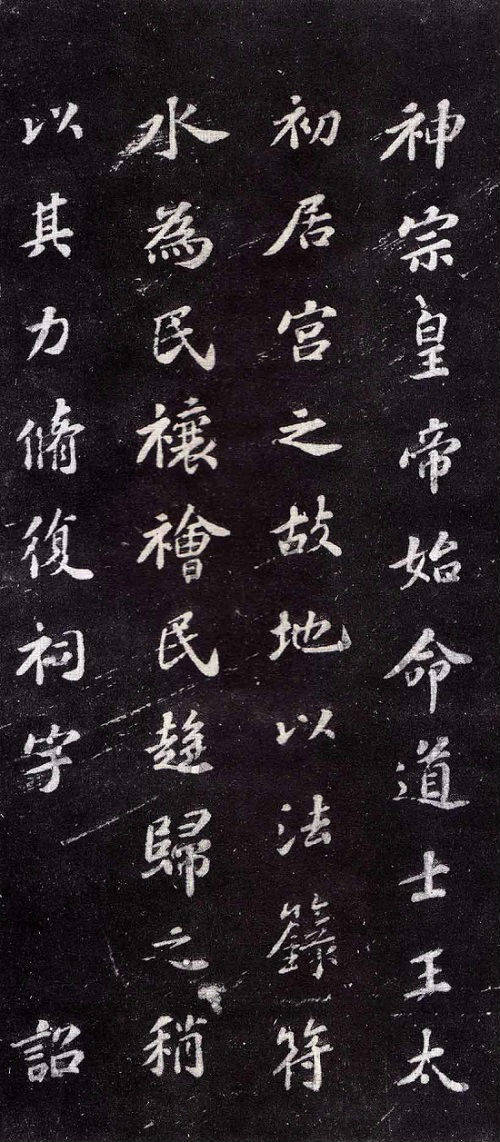 神宗皇帝始命道士王太
初居宫之故地以法籙符
水為民禳禬民趍歸之稍
以其力脩復祠宇 詔